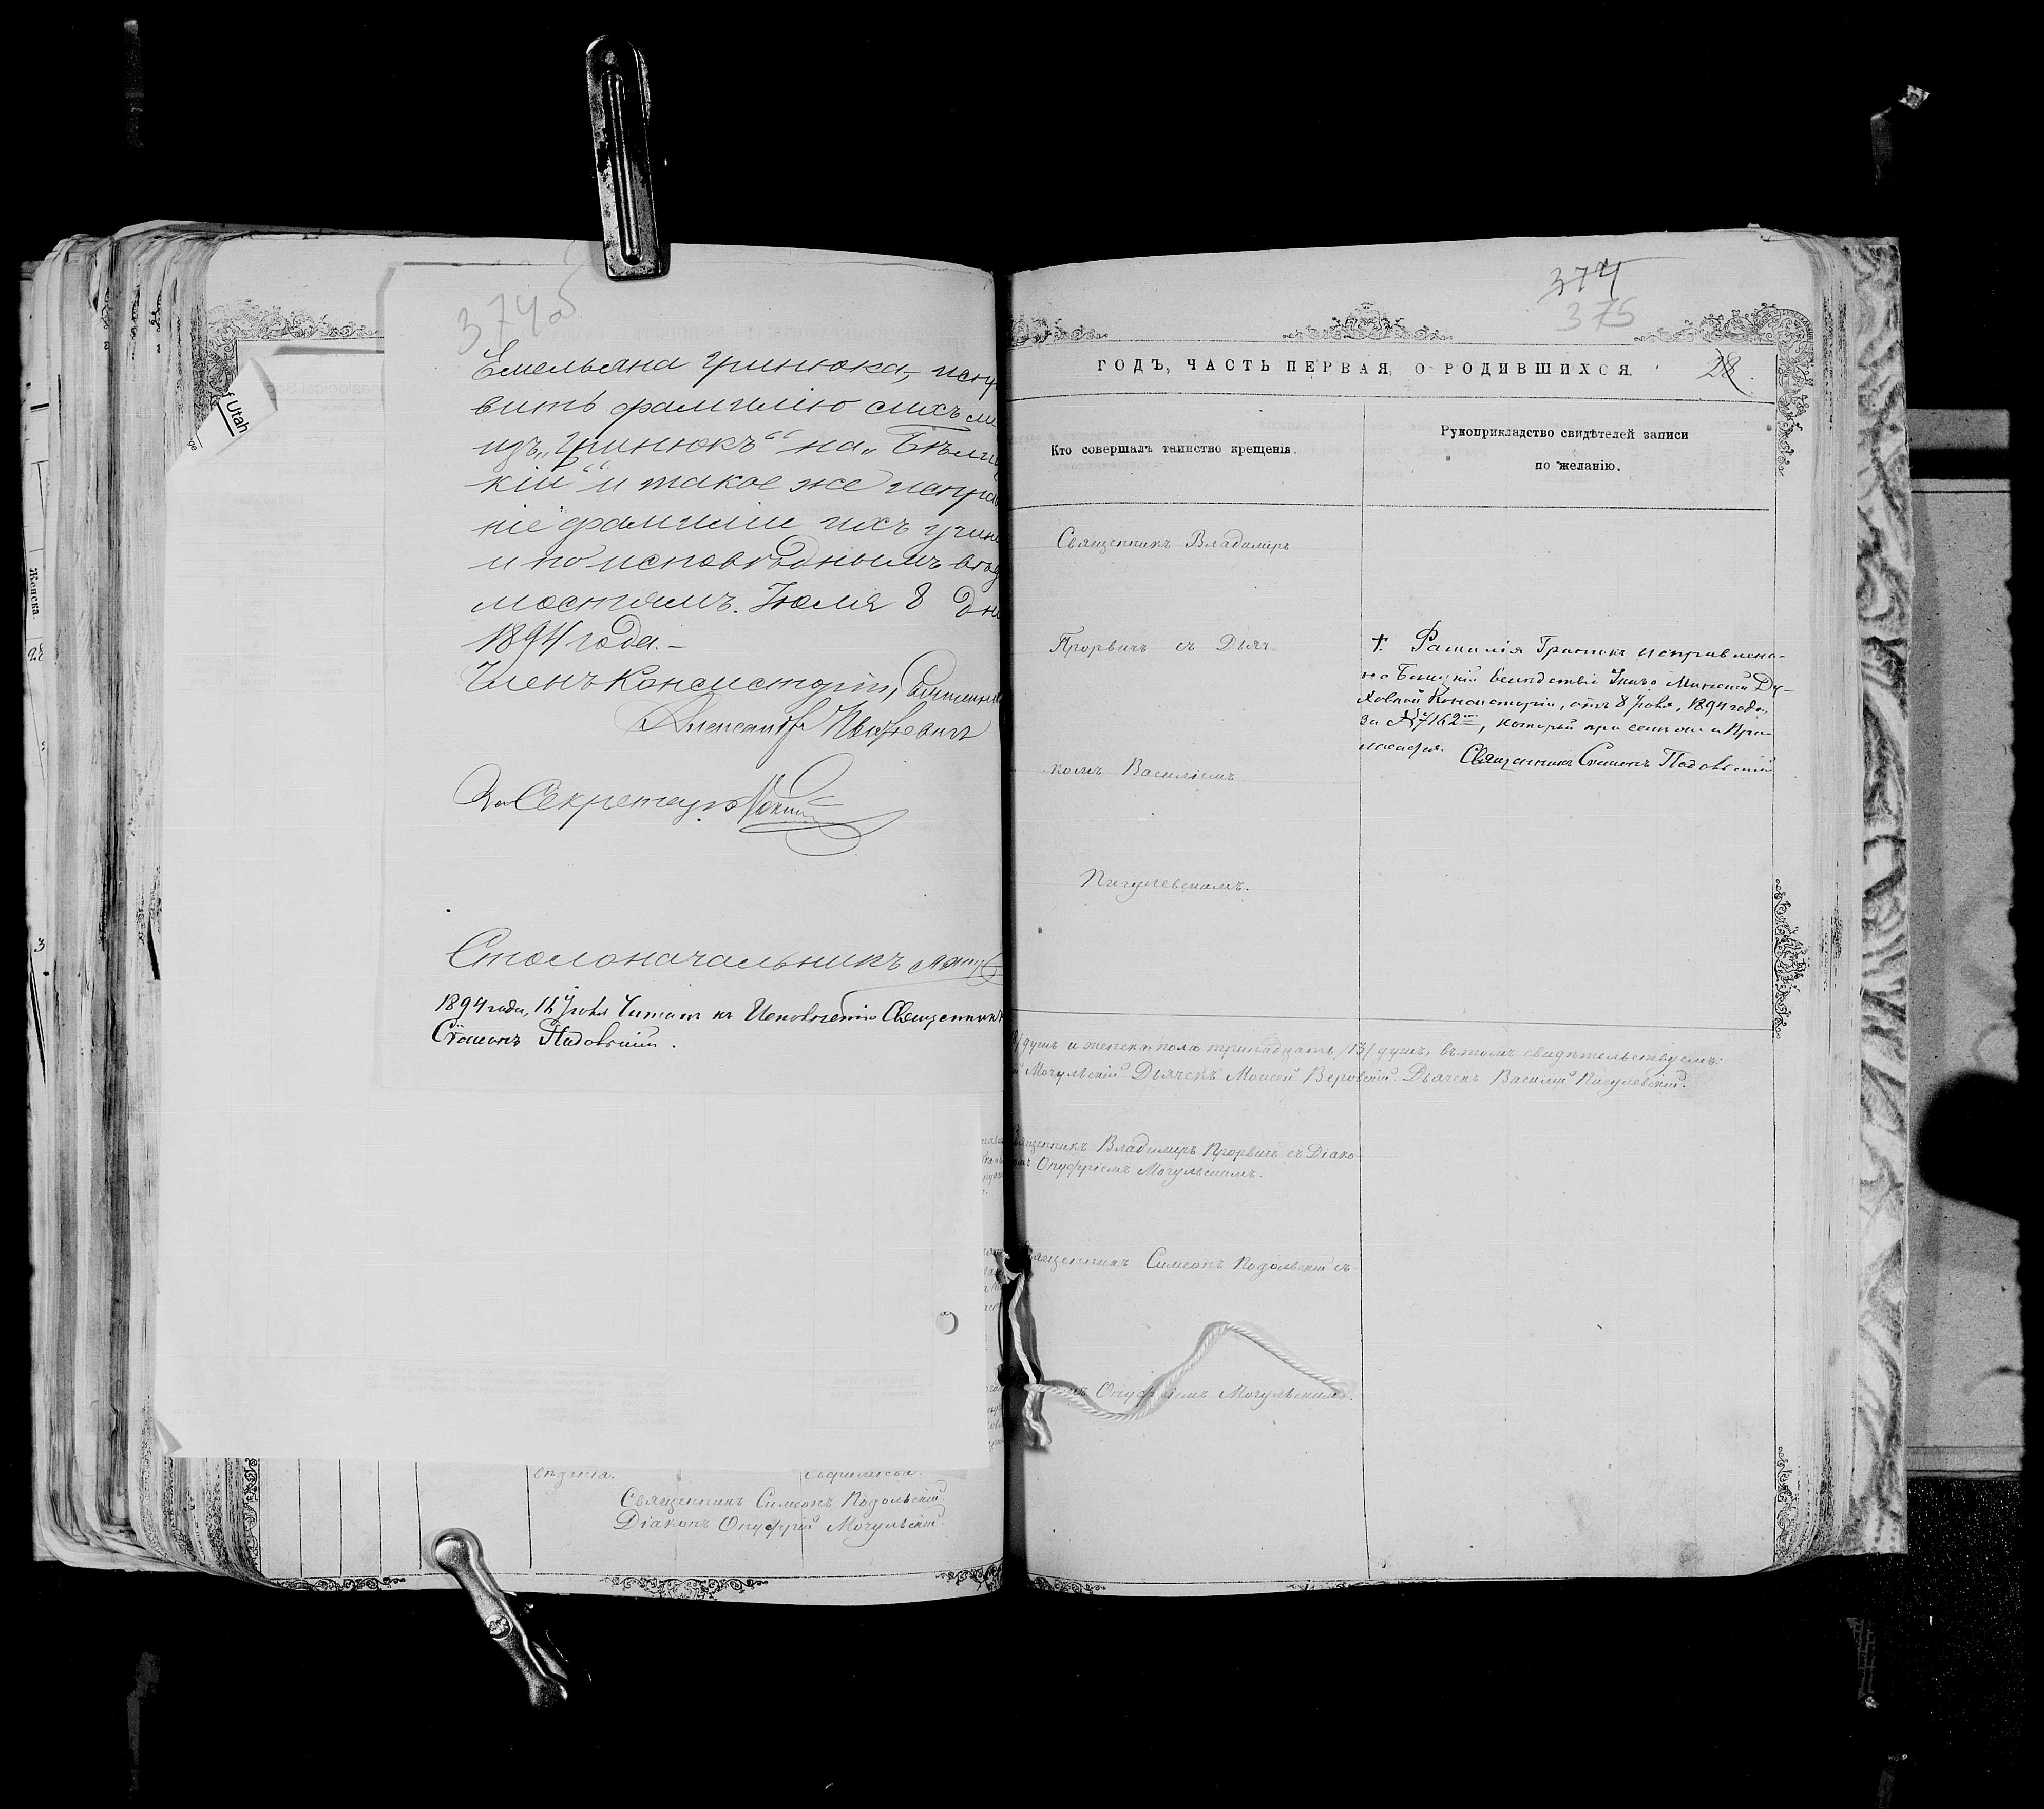 374об
Емельяна Гринюка, испра
вить фамилію сихъ ли
изъ „Гринюкъ“ на „Бѣлиц
кій“ и такое же исправ
ніе фамиліи ихъ учин
и по исповѣднымъ вѣд
мостямъ. Іюля 8 дня
1894 года.-
Членъ Консисторіи, Священни
Александръ
За Секретаря
Столоначальникъ
1894 года, 16 Іюля Читалъ къ Исполненію Священникъ
Сѵмеонъ Подольскій.
f Utah
Женска.
3
Священникъ Симеонъ Подольскій.
Діаконъ Онуфрій Мочульскій.
374
375
ГОДЪ, ЧАСТЬ ПЕРВАЯ, О РОДИВШИХСЯ.
28.
Кто совершалъ таинство крещенія.
Рукоприкладство свидѣтелей записи
по желанію.
Священникъ Владиміръ
Прорвичъ съ Дьяч-
комъ Василіемъ
Пигулевскимъ.
†. Фамилія Гринюкъ исправлена-
на Бѣлицкій вслѣдствіе Указа Минской Ду-
ховной Консисторіи, отъ 8 Іюля, 1894 года,
за №7162мъ, который при семъ и при-
лагается.
Священникъ Сѵмеонъ Подольскій
душъ и женска пола тринадцать /13/ душъ, въ томъ свидѣтельствуемъ:
Мочульскій Дьячекъ Моисей Веровскій. Дьячекъ Василій Пигулевскій.
Священникъ Владиміръ Прорвичъ съ Діако-
номъ Онуфріемъ Мочульскимъ.
Священникъ Симеонъ Подольскій съ
Онуфріемъ Мочульскимъ.